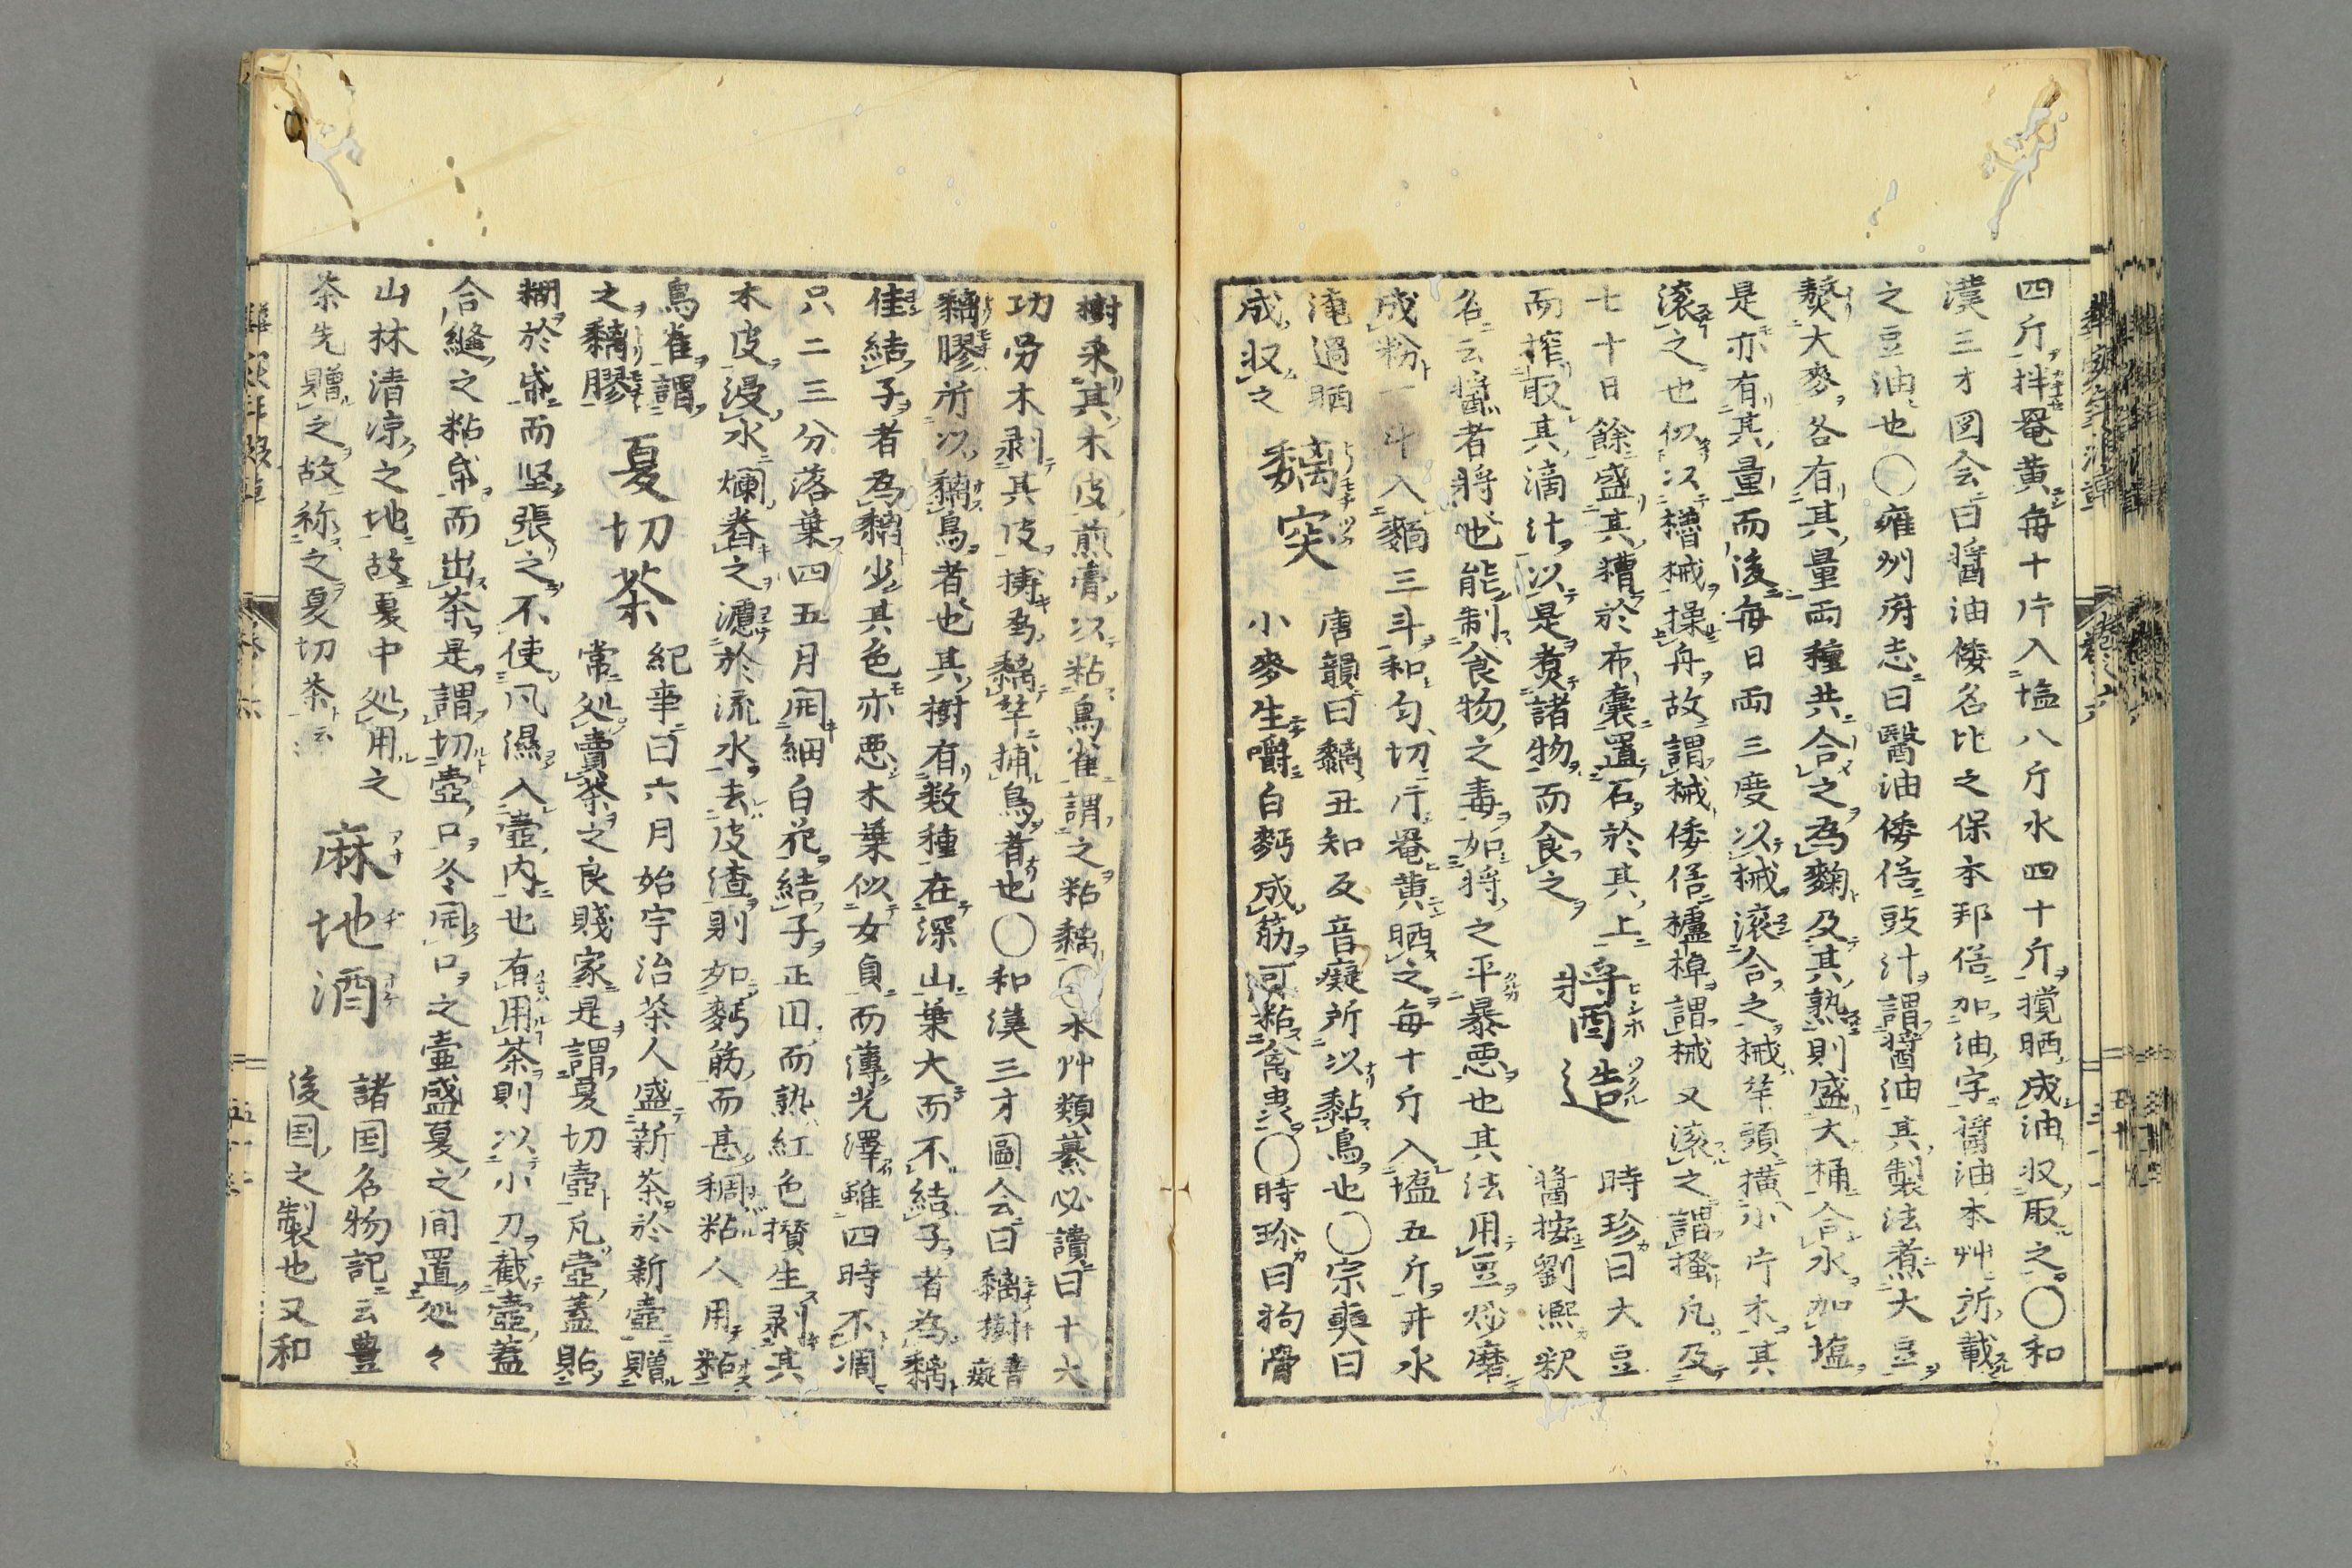 四斤拌罨黄毎十斤入塩八斤水四十斤攪晒成油収取之〇和
漢三才図会曰醤油倭名比之保本邦俗加油字醤油本艸所載
之豆油也〇雍州府志曰醤油倭俗豉汁謂醤油其製法煮大豆
熬大麥各有其量両種共合之為麴及其熟則盛大桶合水加塩
是亦有其量而後毎日両三度以械滚合之械竿頭横小片木其
滚之也似以櫓械操舟故謂械倭俗櫨棹謂械又滚之謂掻凡及
七十日餘盛其糟於布囊置石於其上
而搾取其滴汁以是煮諸物而食之
醤造
時珍曰大豆
醤按劉熙釈
名云醤者將也能制食物之毒如将之平暴悪也其法用豆炒磨
成粉一斗入麵三斗和匀切片罨黄晒之毎十斤入塩五斤井水
淹過晒
成収之
黐突
唐韻曰黐丑知反音癡所以黏鳥也〇宗奭曰
小麥生嚼白麪成筋可粘禽虫〇時珍曰狗滑
樹采其木皮煎膏以粘鳥雀謂之粘黐〇本艸類纂必讀曰十大
功勞木剥其皮擣為黐竿捕鳥者也〇和漢三才圖会曰黐樹音癡
黐膠所以黐鳥者也其樹有数種在深山葉大而不結子者為黐
佳結子者為黐少其色亦悪木葉似女貞而薄光澤雖四時不凋
只二三分落葉四五月開細白花結子正円而熟紅色攅生剥其
木皮浸水爛舂之漉於流水去皮渣則如麪筋而甚稠粘人用粘
鳥雀謂
之黐膠
夏切茶
紀事曰六月始宇治茶人盛新茶於新壺贈
常処賣茶之良賤家是謂夏切壺凡壺蓋貼
糊於紙而坚張之不使凡濕入壺内也有用茶則以小刀截壺蓋
合縫之粘帋而出茶是謂切壺口冬開口之壷盛夏之間置処々
山林清凉之地故夏中処用之
茶先贈之故称之夏切茶云
麻地酒
諸国名物記云豊
後国之製也又和